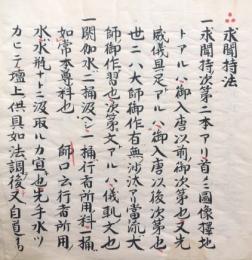 求聞持法
一求聞持次第二本アリ首ニ図像摟地
トアルハ御入唐以前御次第也又先
威儀具足アルハ御入唐以後次第也
世ニハ大師御作有無沙汰アリ當流大
師御作習也次第文アルハ儀軌文也
一閼伽水二桶汲ヘシ一桶行者所用料一桶
如常本尊料也 師口云行者所用
水水瓶ナトニ汲取ルカ宜也先手水ツ
カヒテ壇上供具如法調後又自首ヨリ